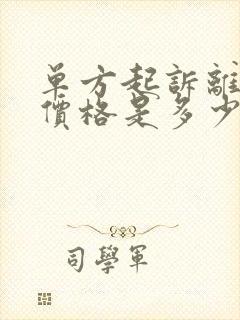 單方起訴離
價格是多少
司學軍